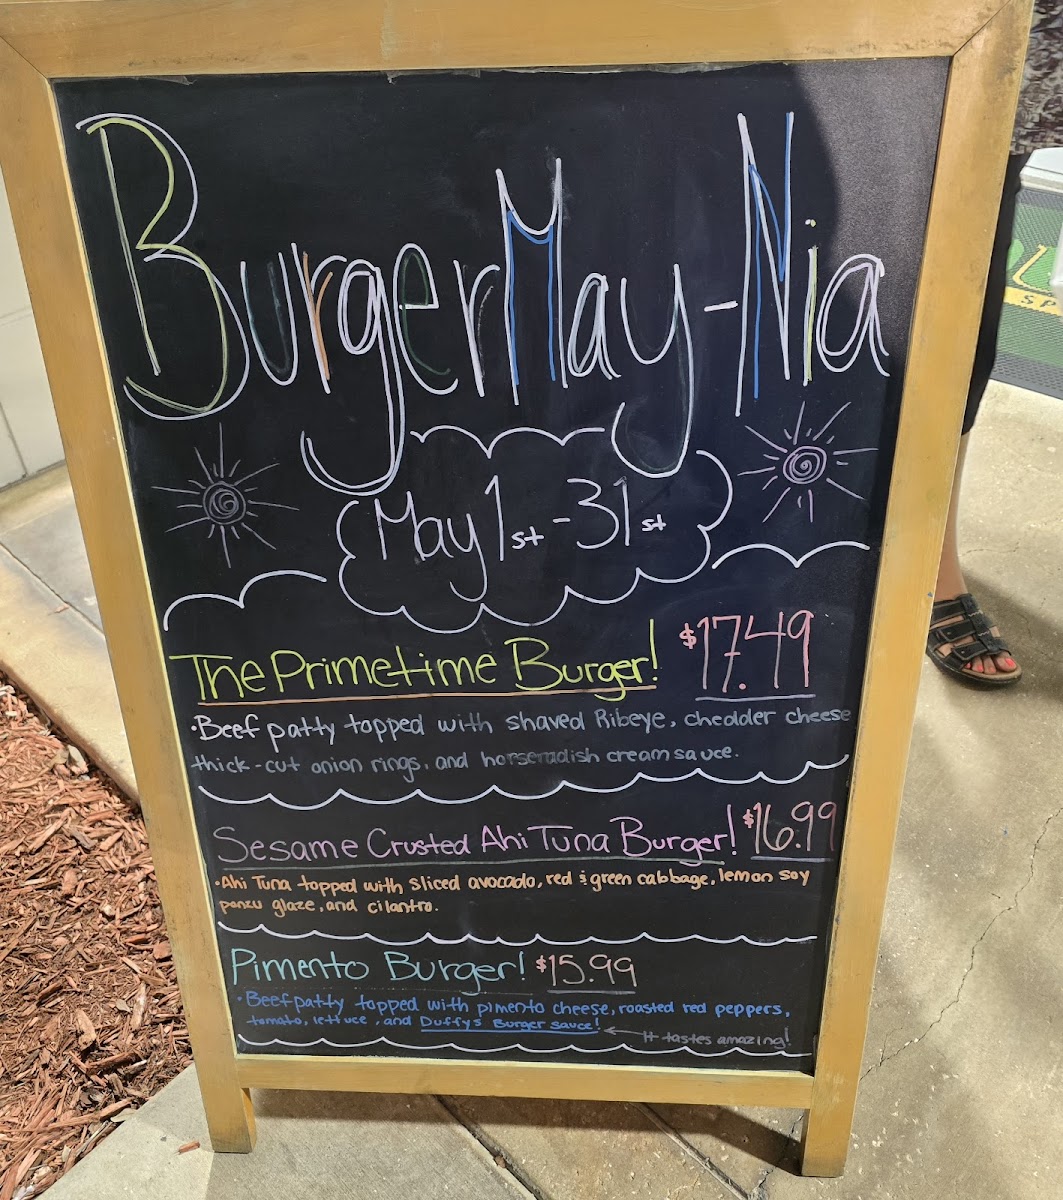 BurgerMay-Nia
May 1st - 31st
The Primetime Burger! $17.49
•Beef patty topped with shaved Ribeye, chedder cheese
thick-cut onion rings, and horseradish cream sauce.
Sesame Crusted Ahi Tuna Burger! $16.99
•Ahi Tuna topped with sliced avocado, red & green cabbage, lemon soy
ponzu glaze, and cilantro.
Pimento Burger! $15.99
•Beef patty topped with pimento cheese, roasted red peppers,
tomato, lettuce, and Duffy's Burger sauce!
It tastes amazing!